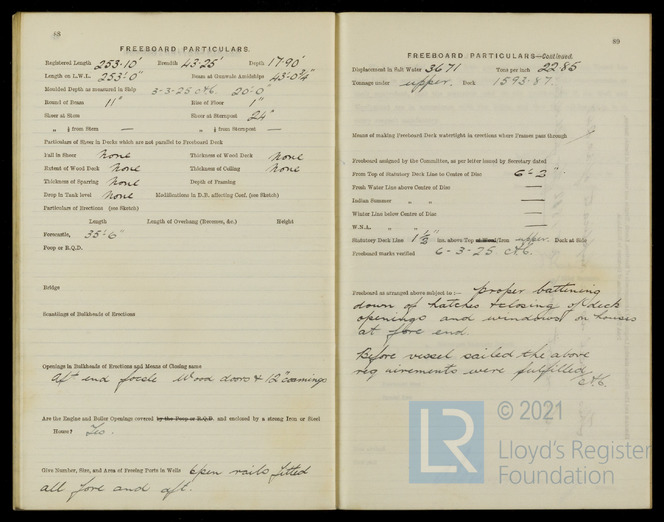 88
FREEBOARD PARTICULARS.
Registered Length 253·10' Breadth 43·25' Depth 17·90'
Length on L.W.L. 253'·0" Beam at Gunwale Amidships
Moulded Depth as measured in Ship 3-3-25 20'·0"
Round of Beam 11" Rise of Floor 1"
Sheer at Stem Sheer at Sternpost 24"
„ ⅛ from Stem — „ ⅛ from Sternpost —
Particulars of Sheer in Decks which are not parallel to Freeboard Deck
Fall in Sheer None Thickness of Wood Deck None
Extent of Wood Deck None Thickness of Ceiling None
Thickness of Sparring None Depth of Framing
Drop in Tank level None Modifications in D.B. affecting Coef. (see Sketch)
Particulars of Erections (see Sketch)
Length Length of Overhang (Recesses, &c.) Height
Forecastle, 35'·6"
Poop or R.Q.D.
Bridge
Scantlings of Bulkheads of Erections
Openings in Bulkheads of Erections and Means of Closing same
Aft end focsle Wood doors & 12" coamings
Are the Engine and Boiler Openings covered by the Poop or R.Q.D. and enclosed by a strong Iron or Steel
House? Yes.
Give Number, Size, and Area of Freeing Ports in Wells Open rails fitted
all fore and aft.
89
FREEBOARD PARTICULARS—Continued.
Displacement in Salt Water 3671 Tons per inch 22·85
Tonnage under upper Deck 1593·87
Means of making Freeboard Deck watertight in erections where Frames pass through
Freeboard assigned by the Committee, as per letter issued by Secretary dated
From Top of Statutory Deck Line to Centre of Disc 6-2"
Fresh Water Line above Centre of Disc —
Indian Summer „ „ —
Winter Line below Centre of Disc —
W.N.A. „ „ —
Statutory Deck Line 1½" ins. above Top of Wood/Iron upper Deck at Side
Freeboard marks verified 6-3-25
Freeboard as arranged above subject to :— proper battening
down of hatches & closing of deck
openings and windows on houses
at fore end.
Before vessel sailed the above
requirements were fulfilled
© 2021
LR
Lloyd's Register
Foundation